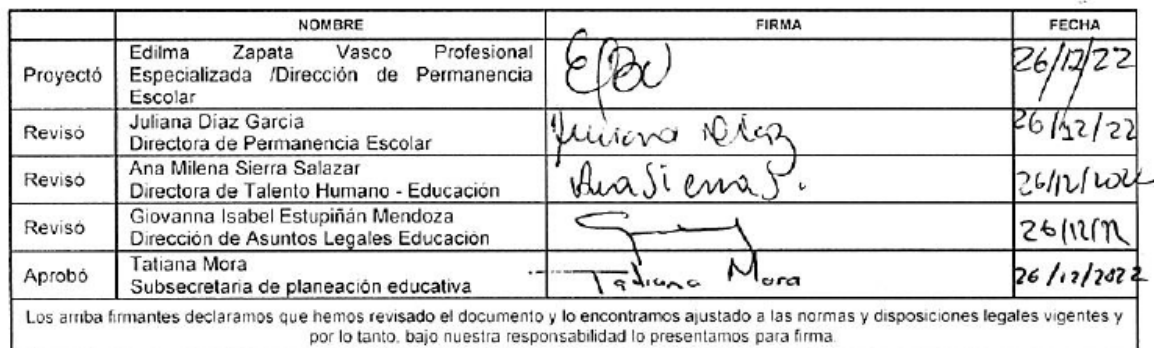 NOMBRE FIRMA FECHA
Proyectó Edilma Zapata Vasco Profesional
Especializada /Dirección de Permanencia
Escolar 26/12/22
Revisó Juliana Díaz Garcia
Directora de Permanencia Escolar Juliana Díaz 26/12/22
Revisó Ana Milena Sierra Salazar
Directora de Talento Humano - Educación Ana Sierra S. 26/12/2022
Revisó Giovanna Isabel Estupiñán Mendoza
Dirección de Asuntos Legales Educación 26/12/22
Aprobó Tatiana Mora
Subsecretaria de planeación educativa Tatiana Mora 26/12/2022
Los arriba firmantes declaramos que hemos revisado el documento y lo encontramos ajustado a las normas y disposiciones legales vigentes y
por lo tanto, bajo nuestra responsabilidad lo presentamos para firma.